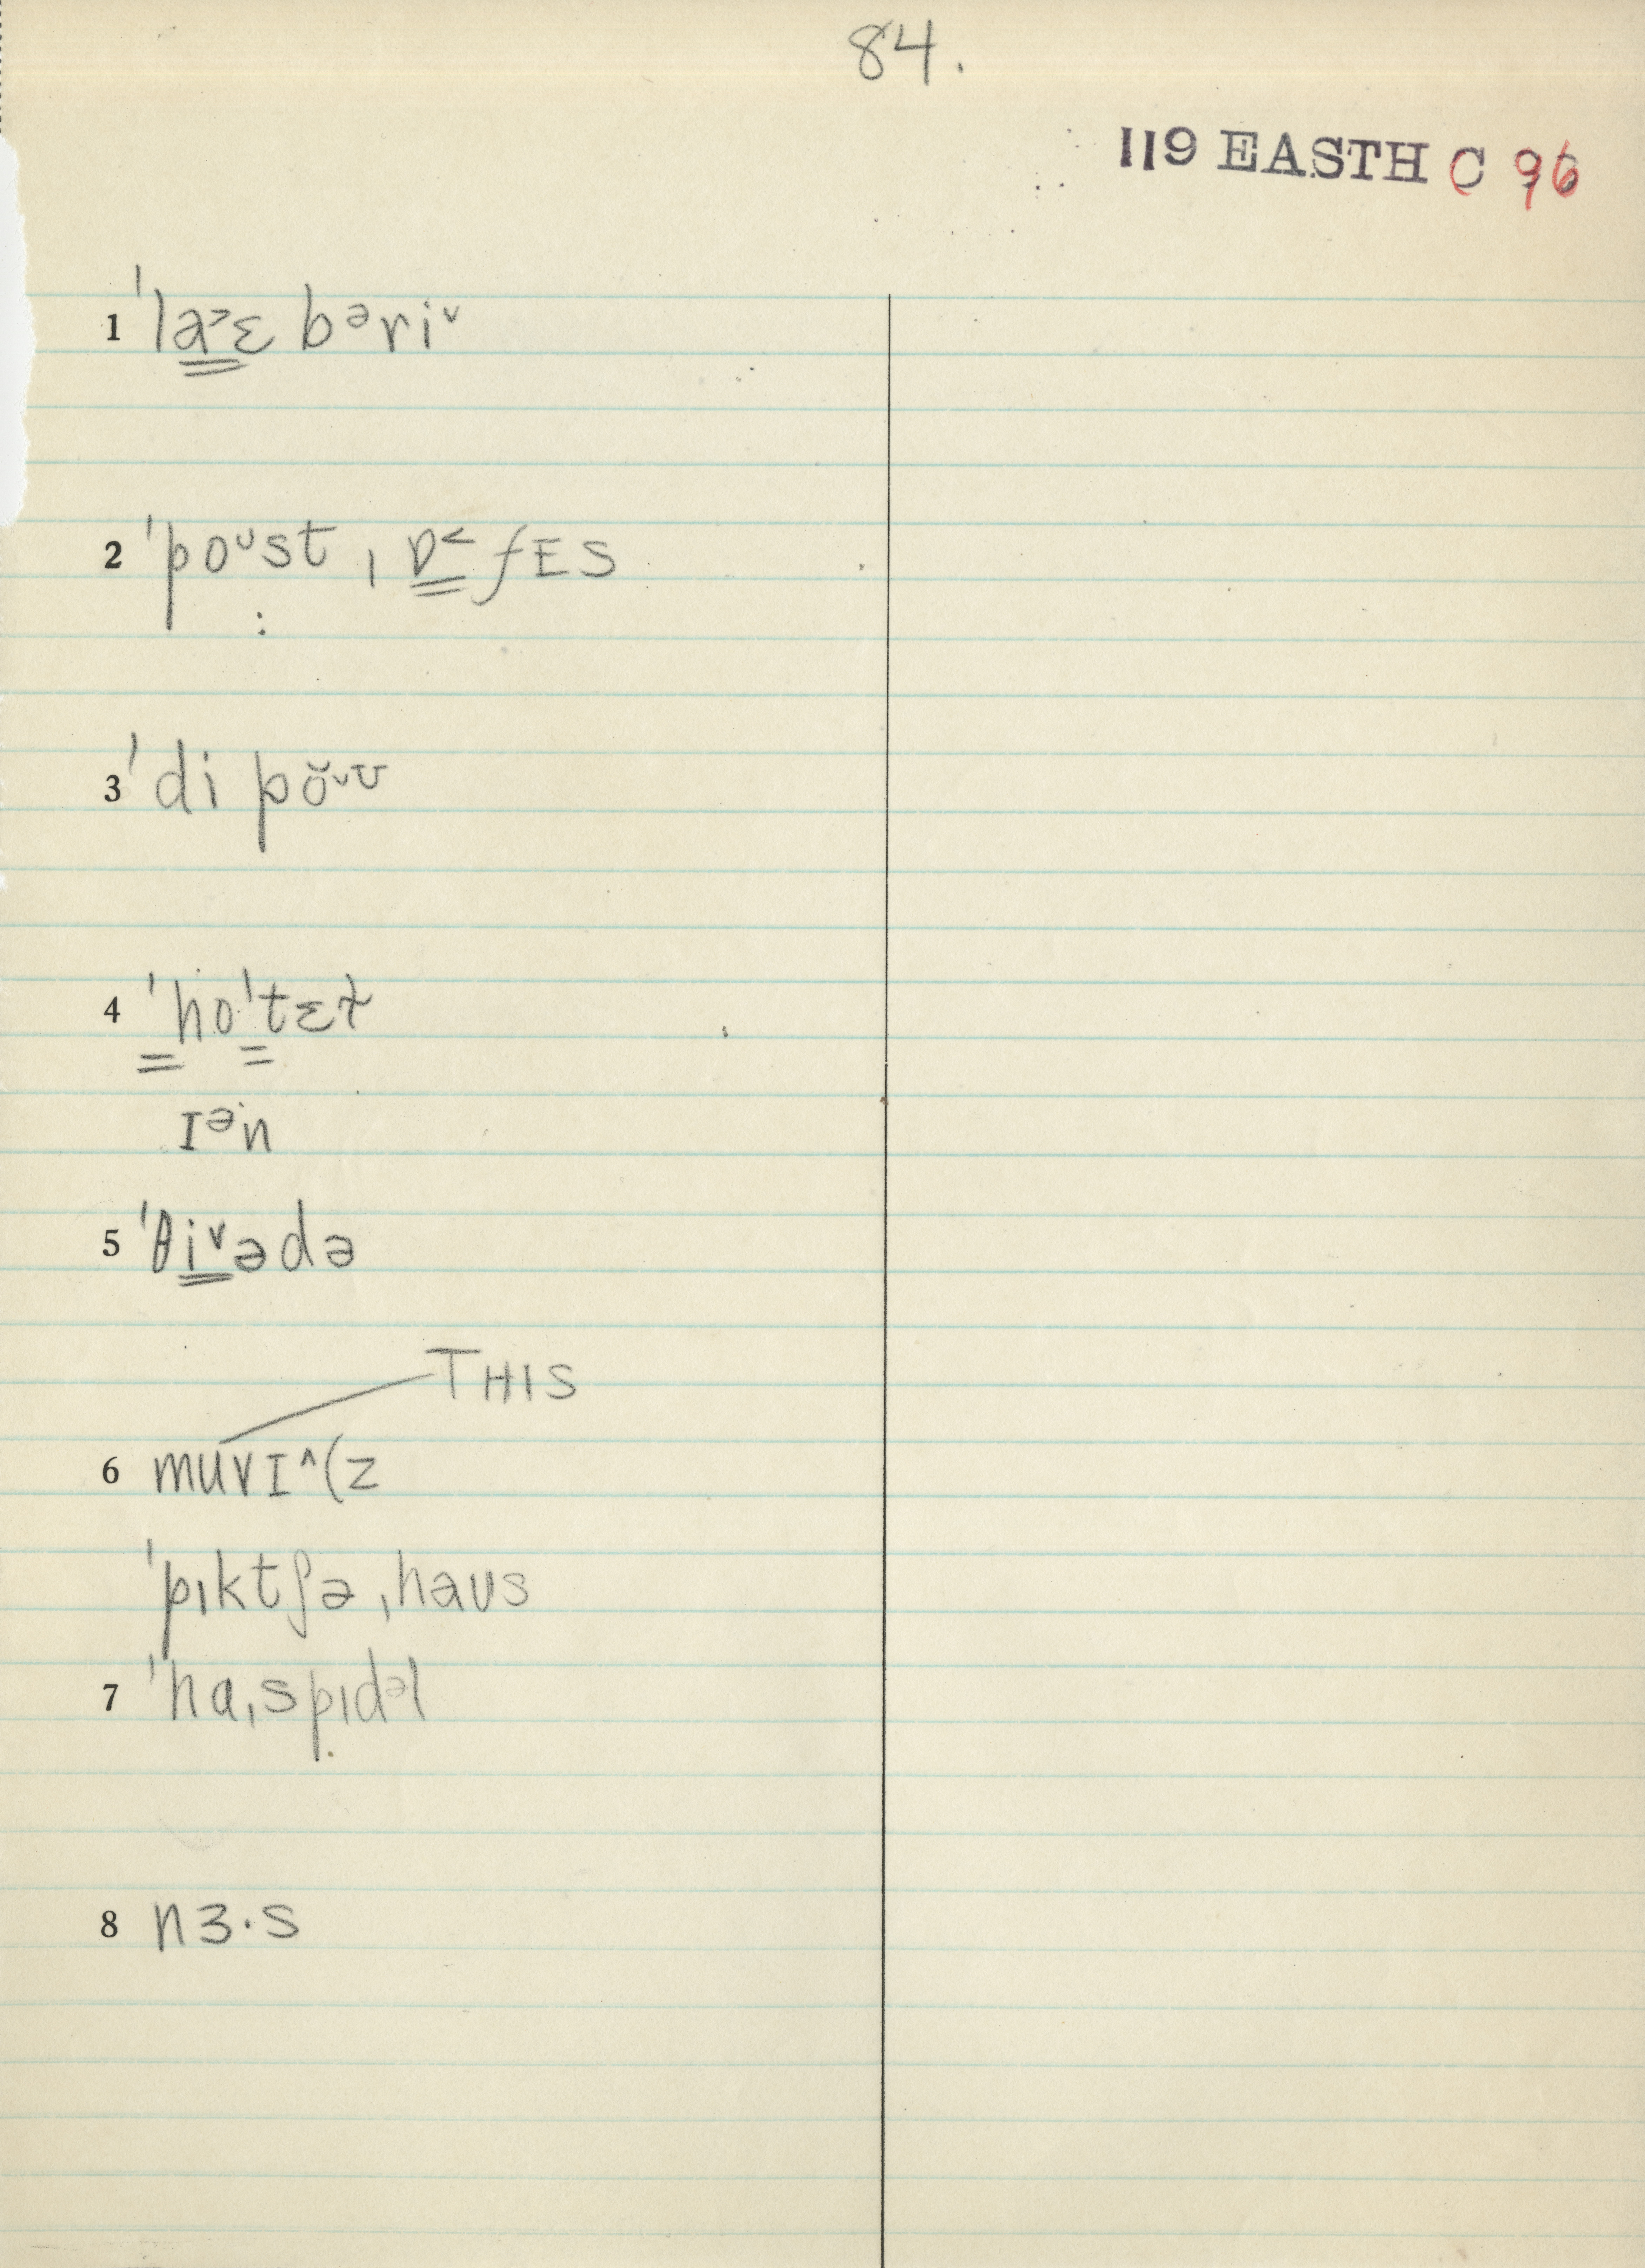 84.
119 EASTH C 96
1 ˈlɑ˃ɛ bᵊriˇ
2 ˈpoᵘst ˌɒ˂fES
3 ˈdi pŏˇʊ
4 ˈhoˈtɛɫ
ɪᵊn
5 ˈθiˇədə
THIS
6 muvɪ^(z
ˈpɪktʃə ˌhaʊs
7 ˈhɑˌspɪdᵊl
8 nɜ·s